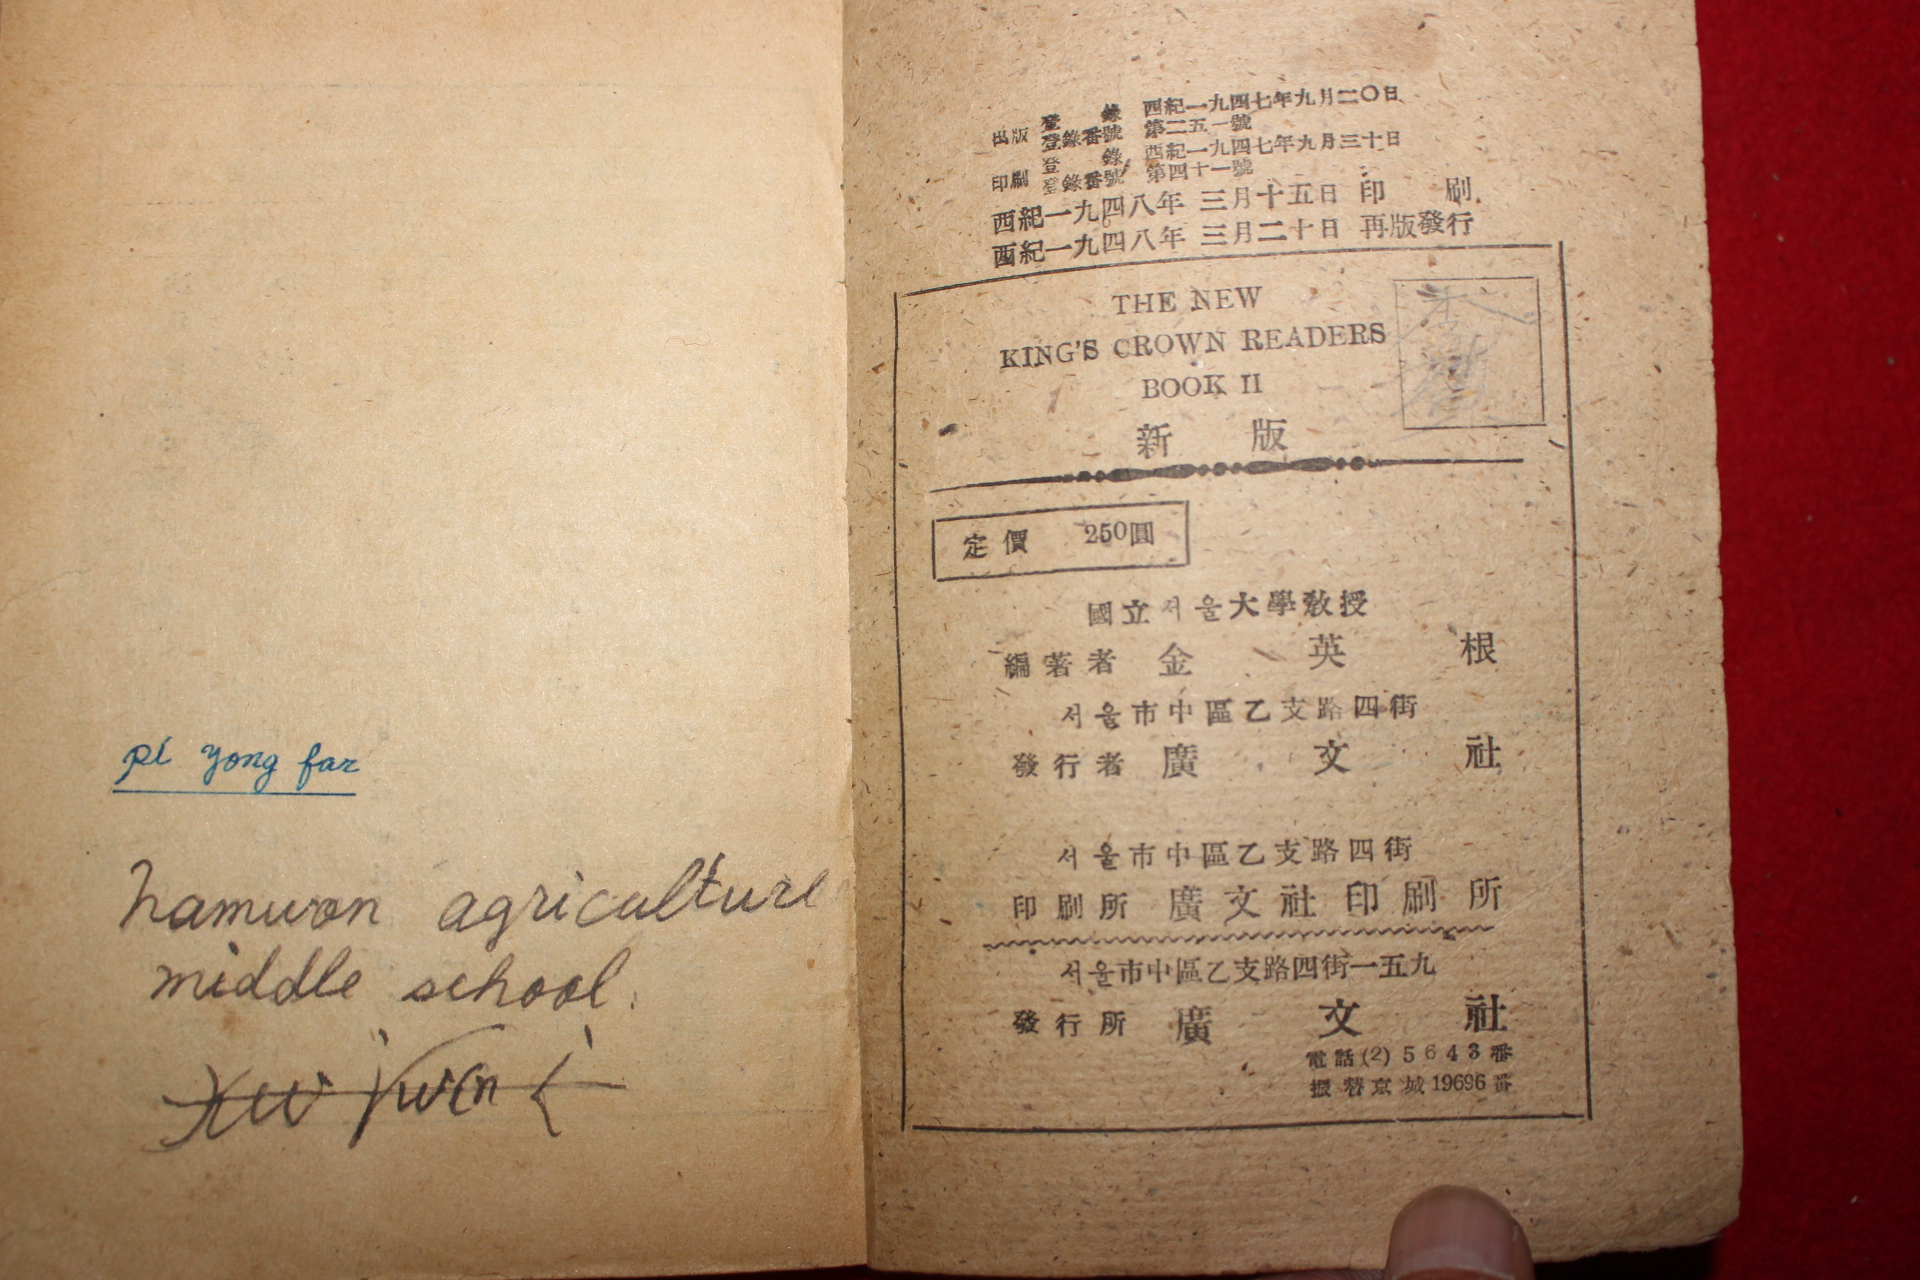 pi yong far
hamwon agriculture
middle school.
出版 登錄 西紀一九四七年九月二〇日
登錄番號 第二五一號
印刷 登錄 西紀一九四七年九月三十日
登錄番號 第四十一號
西紀一九四八年 三月十五日 印刷
西紀一九四八年 三月二十日 再版發行
THE NEW
KING'S CROWN READERS
BOOK II
新版
定價 250圓
國立서울大學敎授
編著者 金英根
서울市中區乙支路四街
發行者 廣文社
서울市中區乙支路四街
印刷所 廣文社印刷所
서울市中區乙支路四街一五九
發行所 廣文社
電話(2)5643番
振替京城19696番